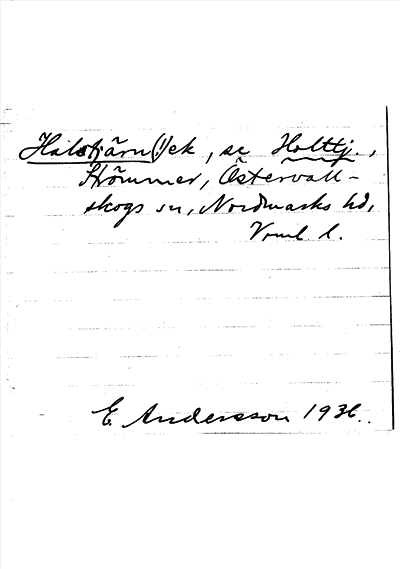 Halstjärn(!)ek, se Holttj.,
Strömmer, Östervall-
skogs sn, Nordmarks hd,
Vrml l.
E. Andersson 1936.